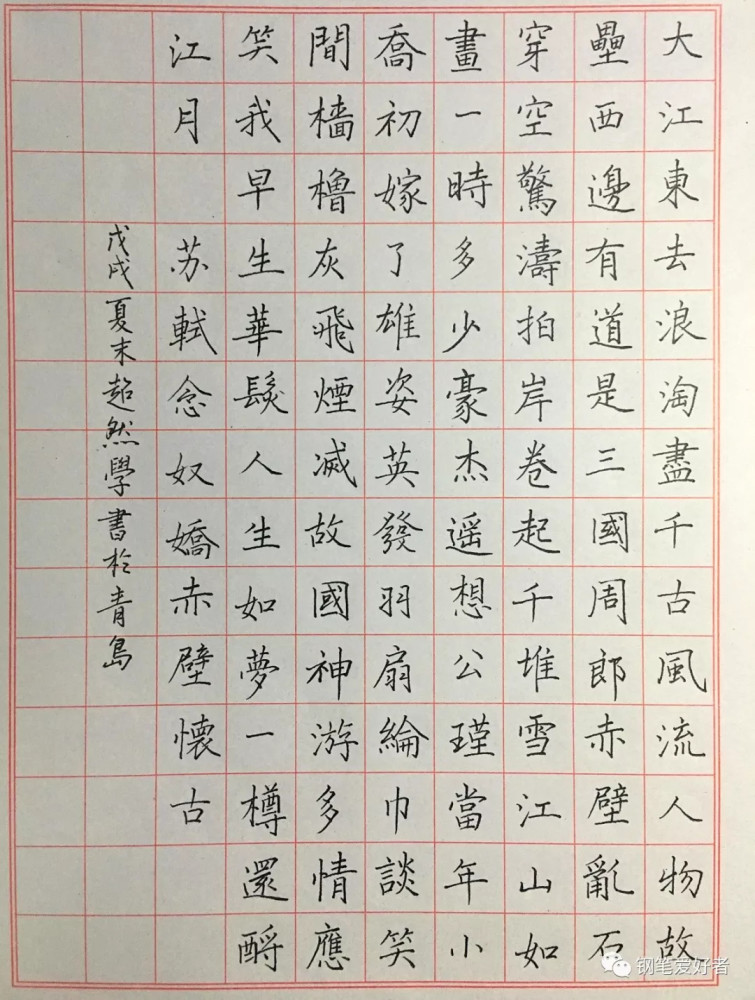 大江東去浪淘盡千古風流人物故
壘西邊有道是三國周郎赤壁亂石
穿空驚濤拍岸卷起千堆雪江山如
畫一時多少豪杰遥想公瑾當年小
喬初嫁了雄姿英發羽扇綸巾談笑
間檣櫓灰飛煙滅故國神游多情應
笑我早生華髮人生如夢一樽還酹
江月 苏軾念奴嬌赤壁懷古
戊戌夏末超然學書於青島
钢笔爱好者